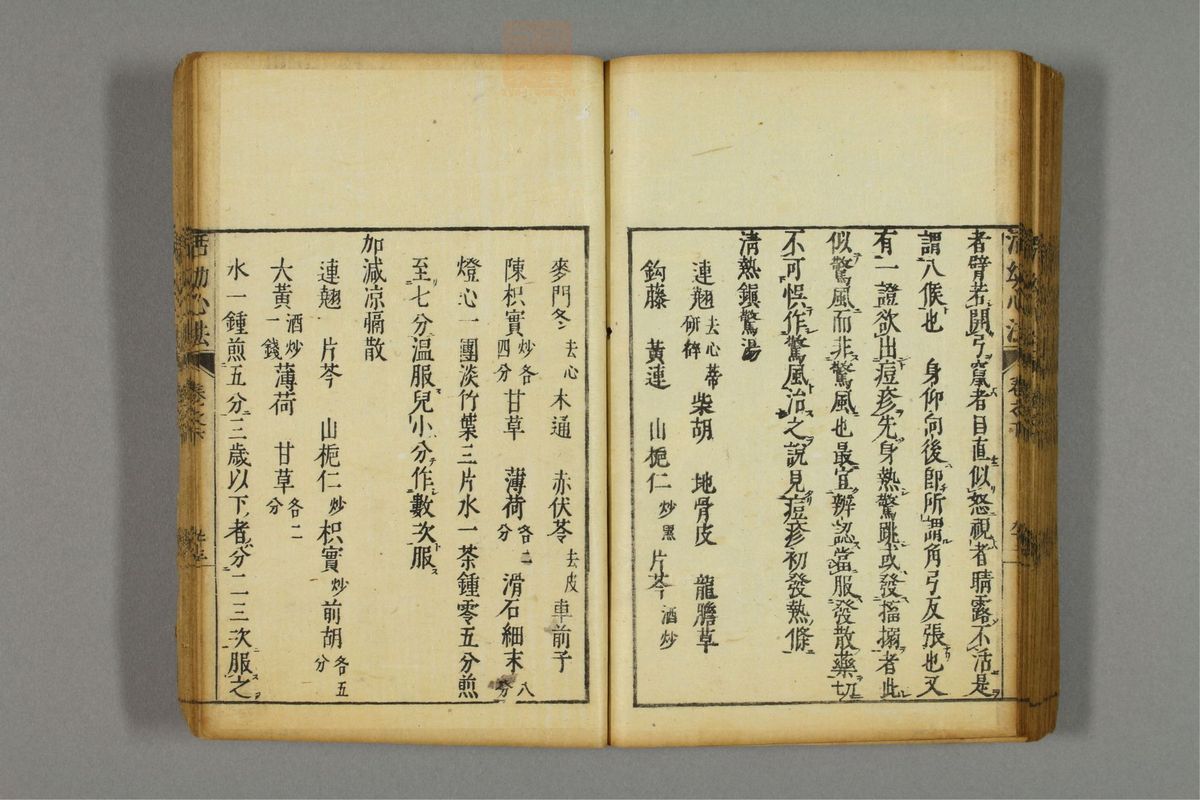 者臂若開弓竄者目直似怒視者睛露不活是
謂八候也　身仰向後即所謂角弓反張也又
有一證欲出痘疹先身熱驚跳或發搐搦者此
似驚風而非驚風也最宜辨認當服發散藥切
不可悞作驚風治之說見痘疹初發熱條
清熱鎭驚湯
連翹去心蒂研碎　柴胡　地骨皮　龍膽草
鈎藤　黃連　山梔仁炒黑　片芩酒炒
麥門冬去心　木通　赤伏苓去皮　車前子
陳枳實炒各四分　甘草　薄荷各二分　滑石細末八分
燈心一團淡竹葉三片水一茶鍾零五分煎
至七分温服兒小分作數次服
加减凉膈散
連翹　片芩　山梔仁炒　枳實炒　前胡各五分
大黃酒炒一錢　薄荷　甘草各二分
水一鍾煎五分三歲以下者分二三次服之
活幼心法